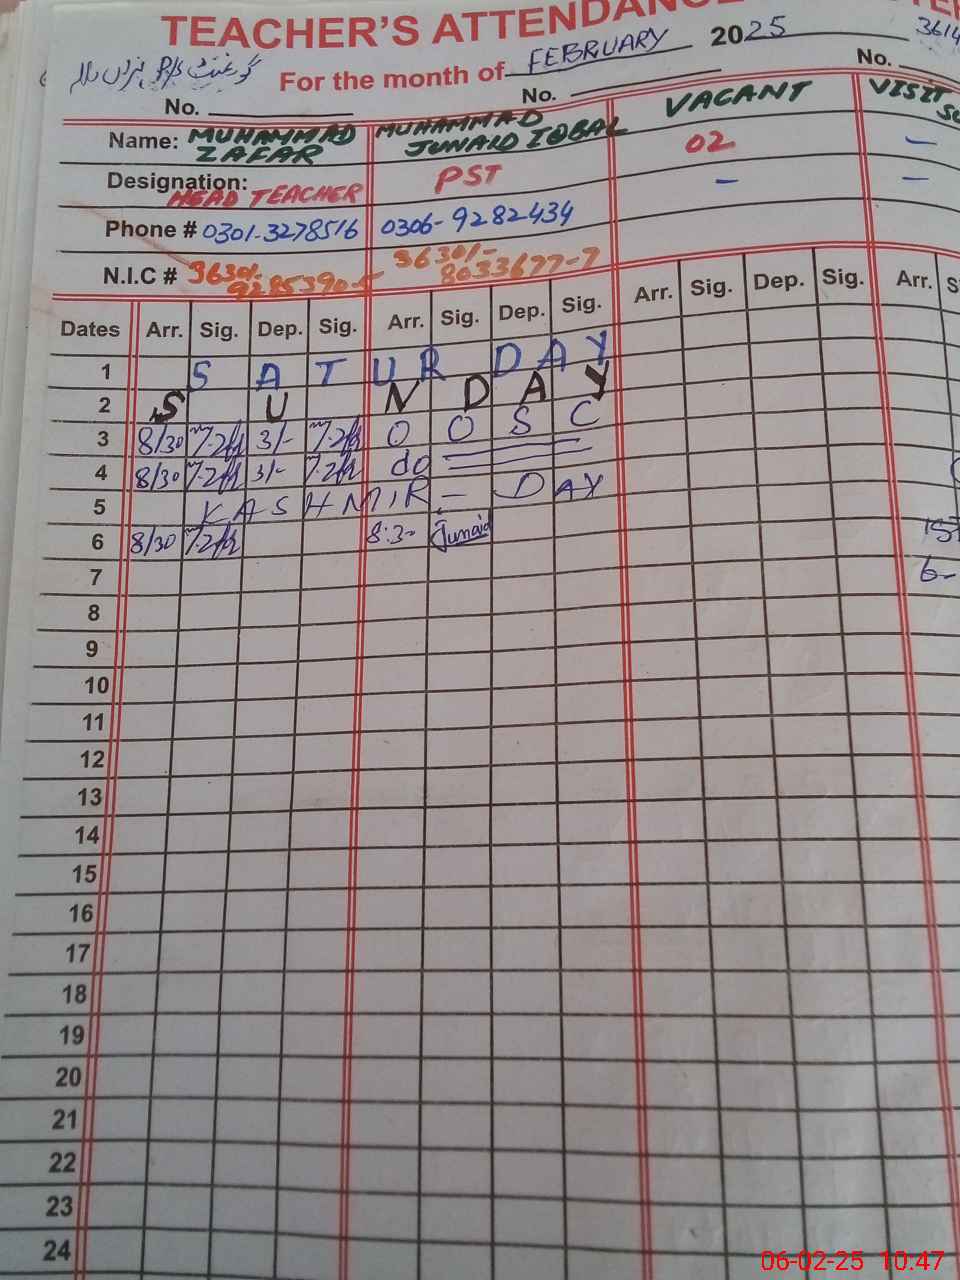 TEACHER'S ATTENDANCE
For the month of FEBRUARY 2025
3614
No. No. No.
Name: MUHAMMAD ZAFAR MUHAMMAD JUNAID IQBAL VACANT VISIT
Designation: HEAD TEACHER PST 02 —
Phone # 0301-3278516 0306-9282434 — —
N.I.C # 36301- 9285390-5 36301- 8033677-7
Dates Arr. Sig. Dep. Sig. Arr. Sig. Dep. Sig. Arr. Sig. Dep. Sig. Arr.
1 SATURDAY
2 SUNDAY
3 8/30 3/- OOSC
4 8/30 3/- do
5 KASHMIR - DAY
6 8/30 8:3- Junaid
7 6-
8
9
10
11
12
13
14
15
16
17
18
19
20
21
22
23
24
06-02-25 10.47